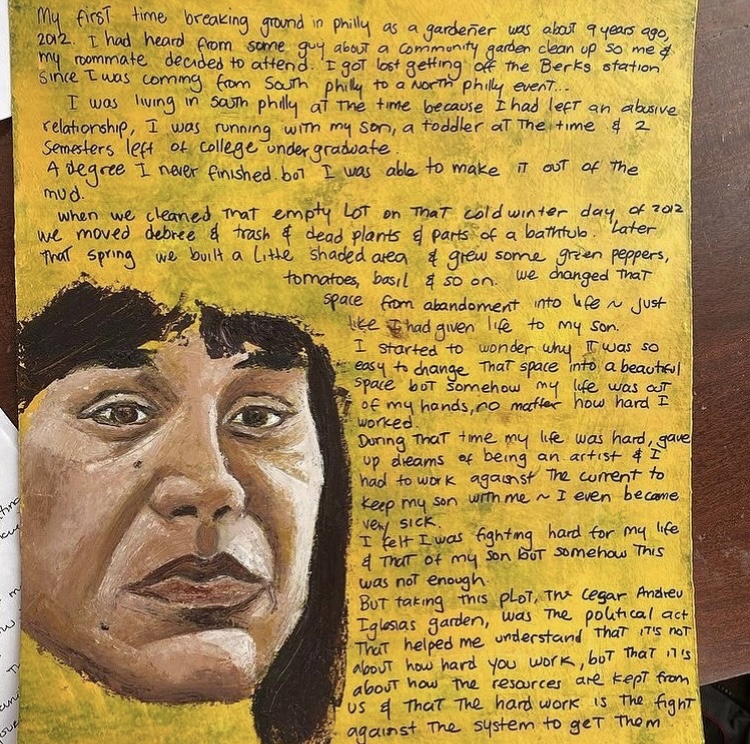 My first time breaking ground in philly as a gardener was about 9 years ago,
2012. I had heard from some guy about a community garden clean up so me &
my roommate decided to attend. I got lost getting off the Berks station
since I was coming from South philly to a North philly event...
I was living in south philly at the time because I had left an abusive
relationship, I was running with my son, a toddler at the time & 2
semesters left of college undergraduate.
A degree I never finished. but I was able to make it out of the
mud.
when we cleaned that empty lot on that cold winter day, of 2012
we moved debree & trash & dead plants & parts of a bathtub. Later
that spring we built a little shaded area & grew some green peppers,
tomatoes, basil & so on. we changed that
space from abandoment into life ~ just
like I had given life to my son.
I started to wonder why it was so
easy to change that space into a beautiful
space but somehow my life was out
of my hands, no matter how hard I
worked.
During that time my life was hard, gave
up dreams of being an artist & I
had to work against the current to
keep my son with me ~ I even became
very sick.
I felt I was fighting hard for my life
& that of my son but somehow this
was not enough.
But taking this plot, the Cesar Andreu
Iglesias garden, was the political act
that helped me understand that it's not
about how hard you work, but that it's
about how the resources are kept from
us & that the hard work is the fight
against the system to get them